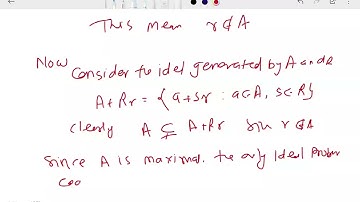 This mean r∉A
Now Consider the idel generated by A and R
A+Rr = {a+sr : a∈A, s∈R}
clearly A ⊊ A+Rr sin r∉A
Since A is maximal. the only Ideal Proper